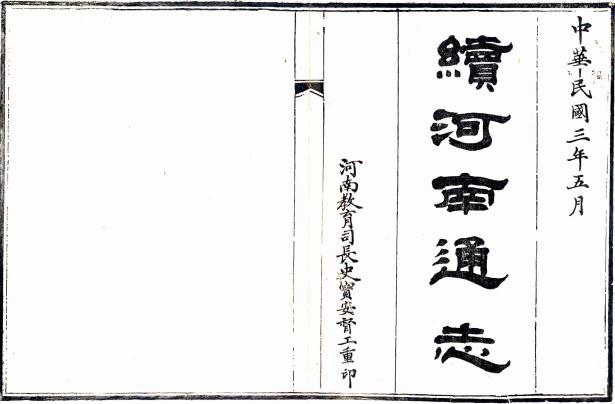 中華民國三年五月
續河南通志
河南教育司長史寶安督工重印